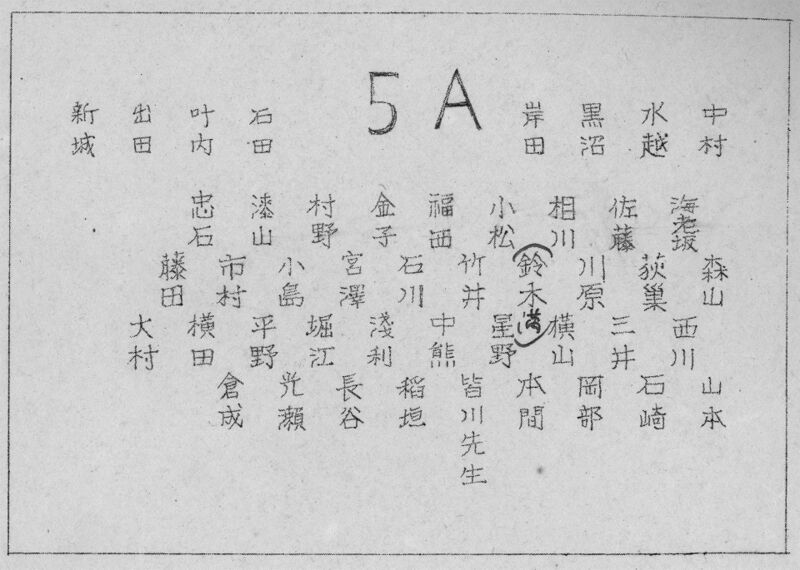 5A
中村
水越
黒沼
岸田
石田
叶内
出田
新城
海老坂
佐藤
相川
小松
福西
金子
村野
漆山
忠石
森山
荻巣
川原
鈴木(満)
竹井
石川
宮澤
小島
市村
藤田
西川
三井
横山
星野
中熊
淺利
堀江
平野
横田
大村
山本
石崎
岡部
本間
皆川先生
稻垣
長谷
光瀬
倉成